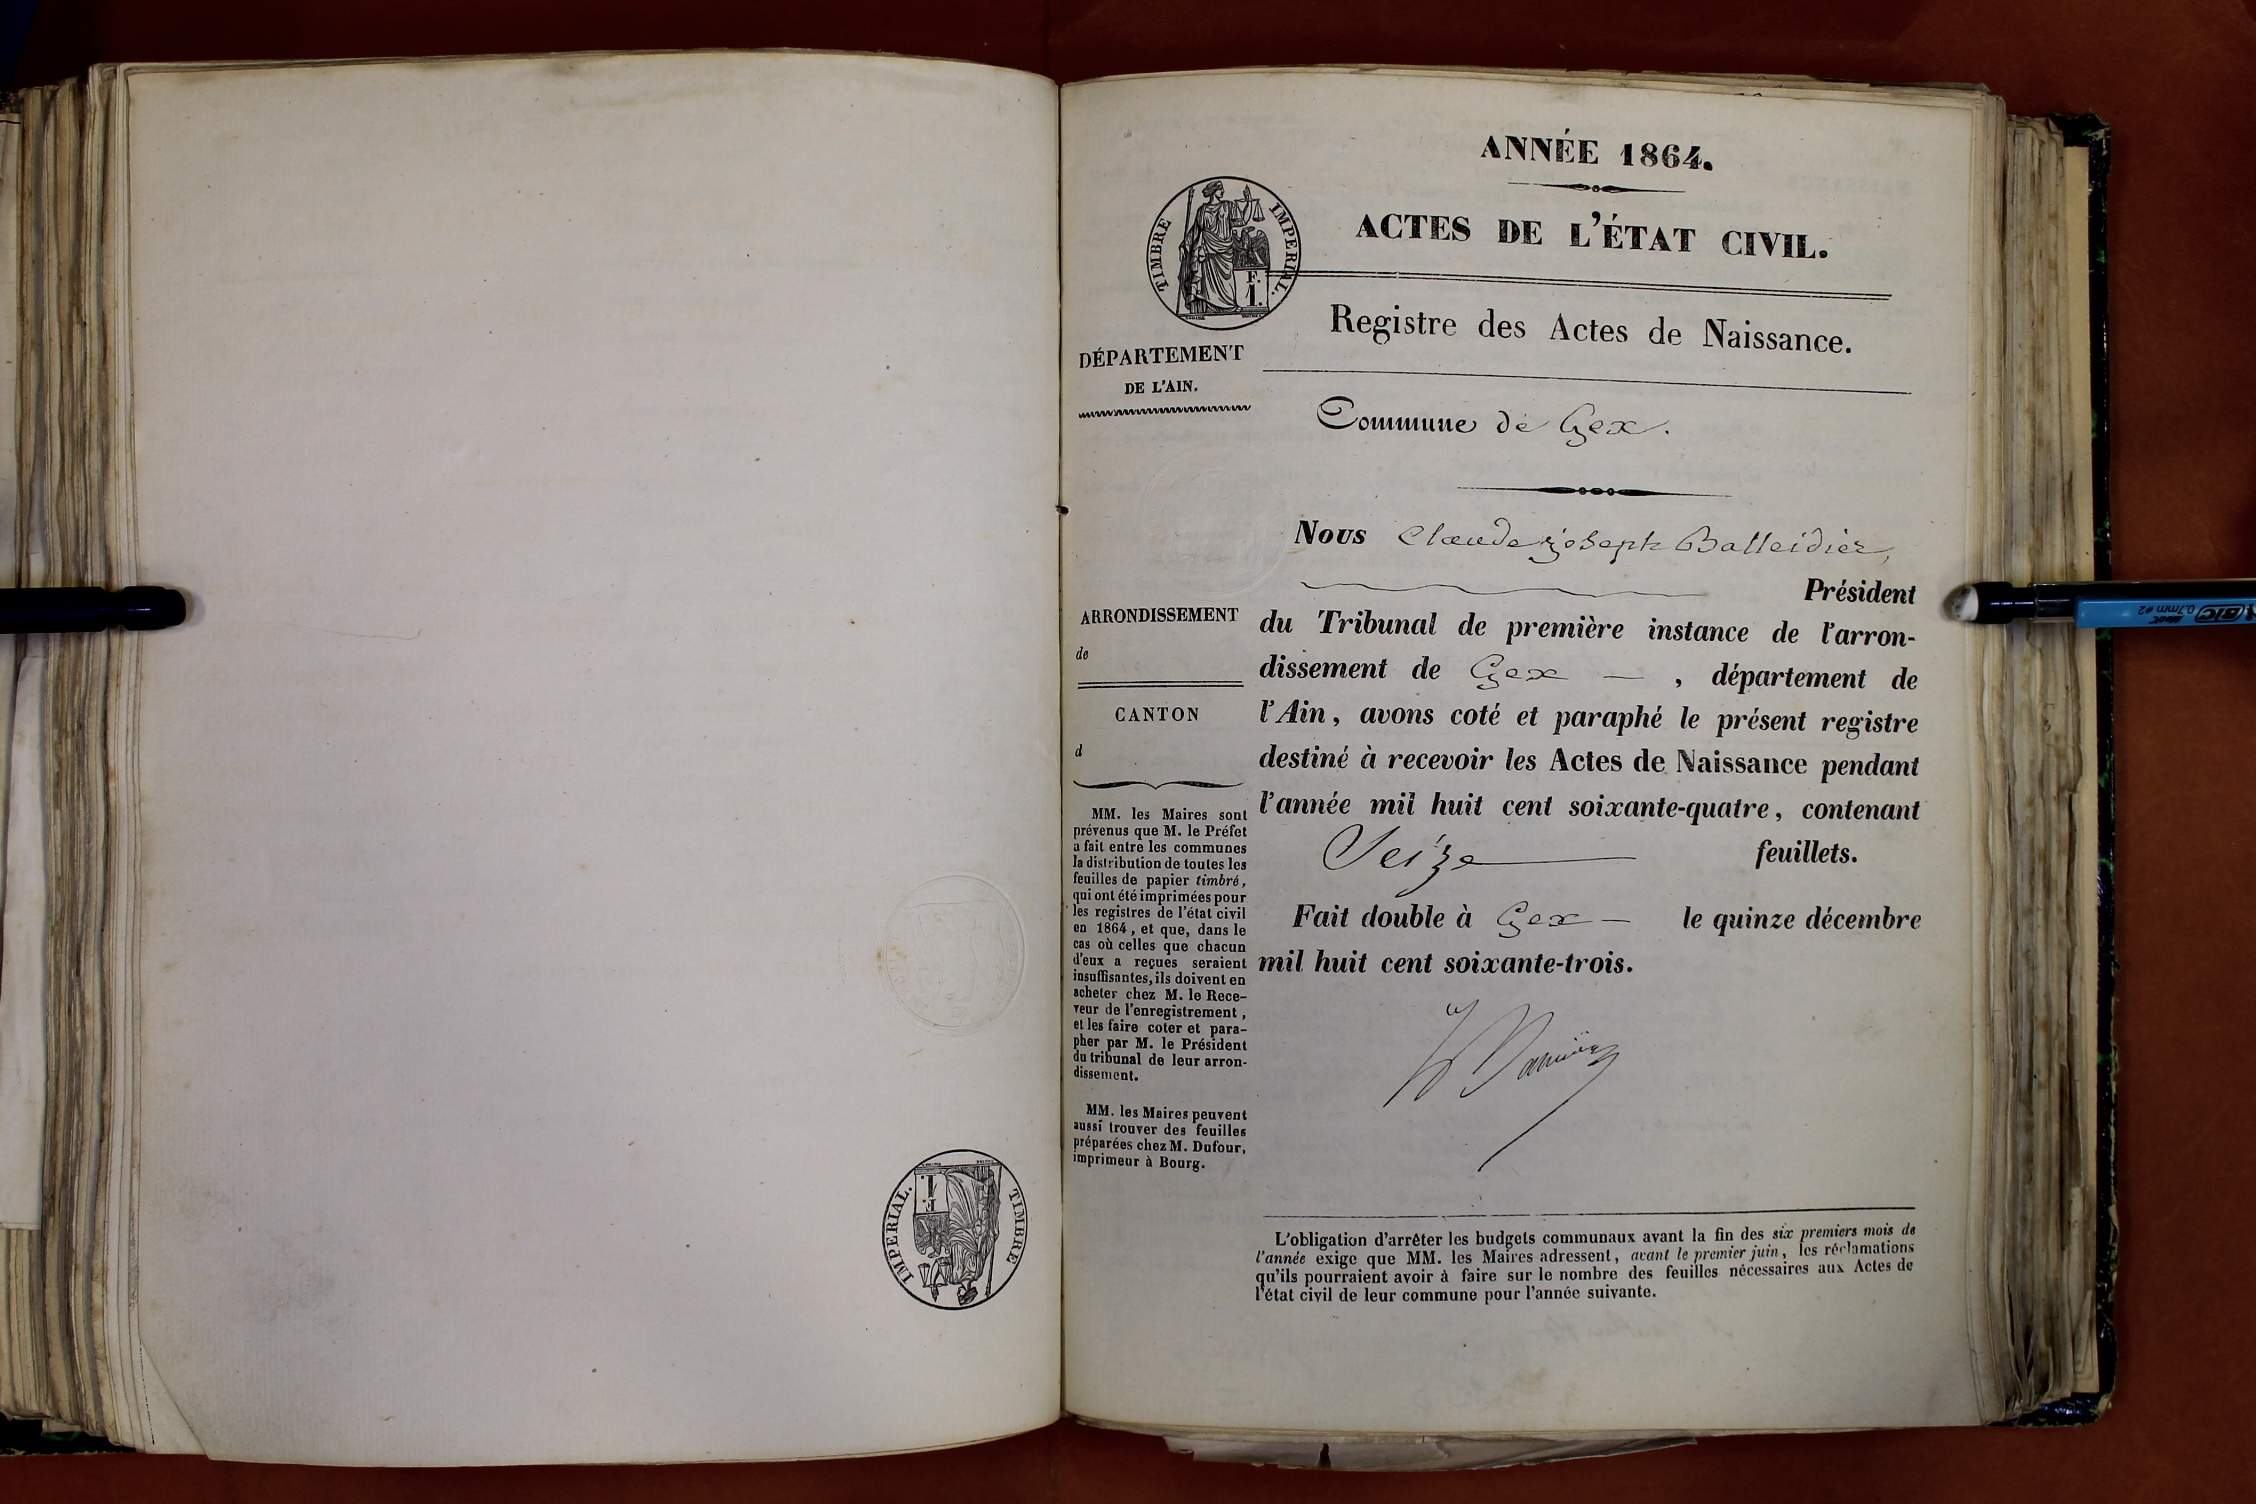 ANNÉE 1864.
ACTES DE L'ÉTAT CIVIL.
TIMBRE IMPERIAL.
F.
1.
Registre des Actes de Naissance.
DÉPARTEMENT
DE L'AIN.
Commune de Gex.
Nous Claude joseph Balleidier,
Président
ARRONDISSEMENT
de
CANTON
d
du Tribunal de première instance de l'arron-
dissement de Gex — , département de
l'Ain, avons coté et paraphé le présent registre
destiné à recevoir les Actes de Naissance pendant
l'année mil huit cent soixante-quatre, contenant
Seize feuillets.
Fait double à Gex — le quinze décembre
mil huit cent soixante-trois.
MM. les Maires sont
prévenus que M. le Préfet
a fait entre les communes
la distribution de toutes les
feuilles de papier timbré,
qui ont été imprimées pour
les registres de l'état civil
en 1864, et que, dans le
cas où celles que chacun
d'eux a reçues seraient
insuffisantes, ils doivent en
acheter chez M. le Rece-
veur de l'enregistrement,
et les faire coter et para-
pher par M. le Président
du tribunal de leur arron-
dissement.
MM. les Maires peuvent
aussi trouver des feuilles
préparées chez M. Dufour,
imprimeur à Bourg.
L'obligation d'arrêter les budgets communaux avant la fin des six premiers mois de
l'année exige que MM. les Maires adressent, avant le premier juin, les réclamations
qu'ils pourraient avoir à faire sur le nombre des feuilles nécessaires aux Actes de
l'état civil de leur commune pour l'année suivante.
TIMBRE IMPERIAL.
F.
1.
BIC
0.7mm #2